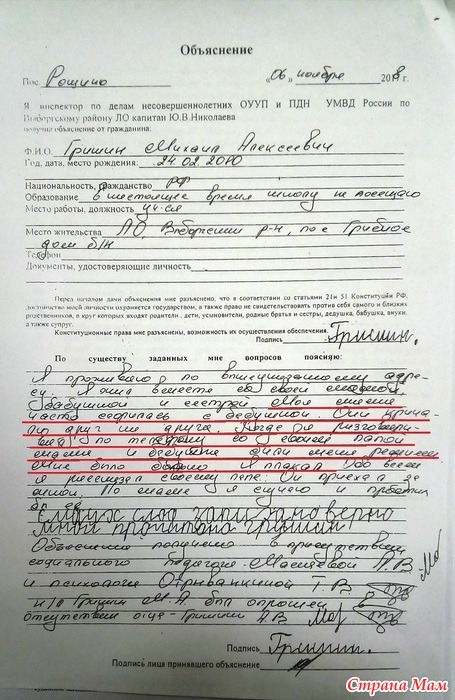 Объяснение
Пос. Рощино «06» ноября 2018 г.
Я инспектор по делам несовершеннолетних ОУУП и ПДН УМВД России по
Выборгскому району ЛО капитан Ю.В.Николаева
получил объяснение от гражданина:
Ф.И.О. Гришин Михаил Алексеевич
Год, дата, место рождения: 24.02.2010
Национальность, гражданство РФ
Образование в настоящее время школу не посещаю
Место работы, должность уч-ся
Место жительства ЛО, Выборгский р-н, пос Грибное
дом б/н
Телефон
Документы, удостоверяющие личность
Перед началом дачи объяснения мне разъяснено, что в соответствии со статьями 21и 51 Конституции РФ,
достоинство моей личности охраняется государством, а также право не свидетельствовать против себя самого и близких
родственников, в круг которых входят родители, дети, усыновители, родные братья и сестры, дедушка, бабушка, внуки,
а также супруг.
Конституционные права мне разъяснены, возможность их осуществления обеспечения.
Подпись Гришин.
По существу заданных мне вопросов поясняю:
Я проживаю по вышеуказанному адре-
су. Я жил вместе со своей мамой,
бабушкой и сестрой. Моя мама
часто ссорилась с бабушкой. Они крича-
ли друг на друга. Когда я разговари-
вал по телефону со своей папой
мама и бабушка били меня ремнем
мне было больно я плакал. Обо всем
я рассказал своему папе. Он приехал за
мной. По маме я скучаю и
с моих слов записано верно
мной прочитано Гришин
Объяснение получено в присутствии
социального педагога Л.В
и психолога Т.В
н/л Гришин М.А был опрошен в
отсутствии отца - Гришина А.В
Подпись Гришин.
Подпись лица принявшего объяснение
Страна Мам